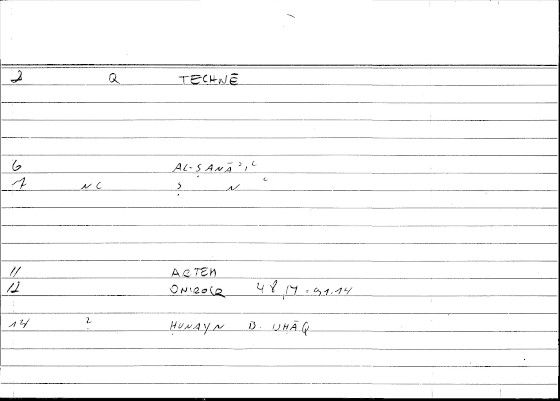 2 Q TECHNĒ
6 AL-ṢANĀʾIʿ
7 NC Ṣ N ʿ
11 ARTEM
12 ONIROCR 48,17 = 91.14
14 2 ḤUNAYN B. ISḤĀQ